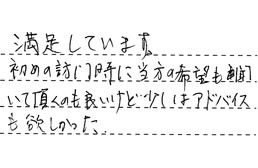 満足しています。
初めの訪問時に当方の希望も聞
いて頂くのも良いけど少しはアドバイス
も欲しかった。